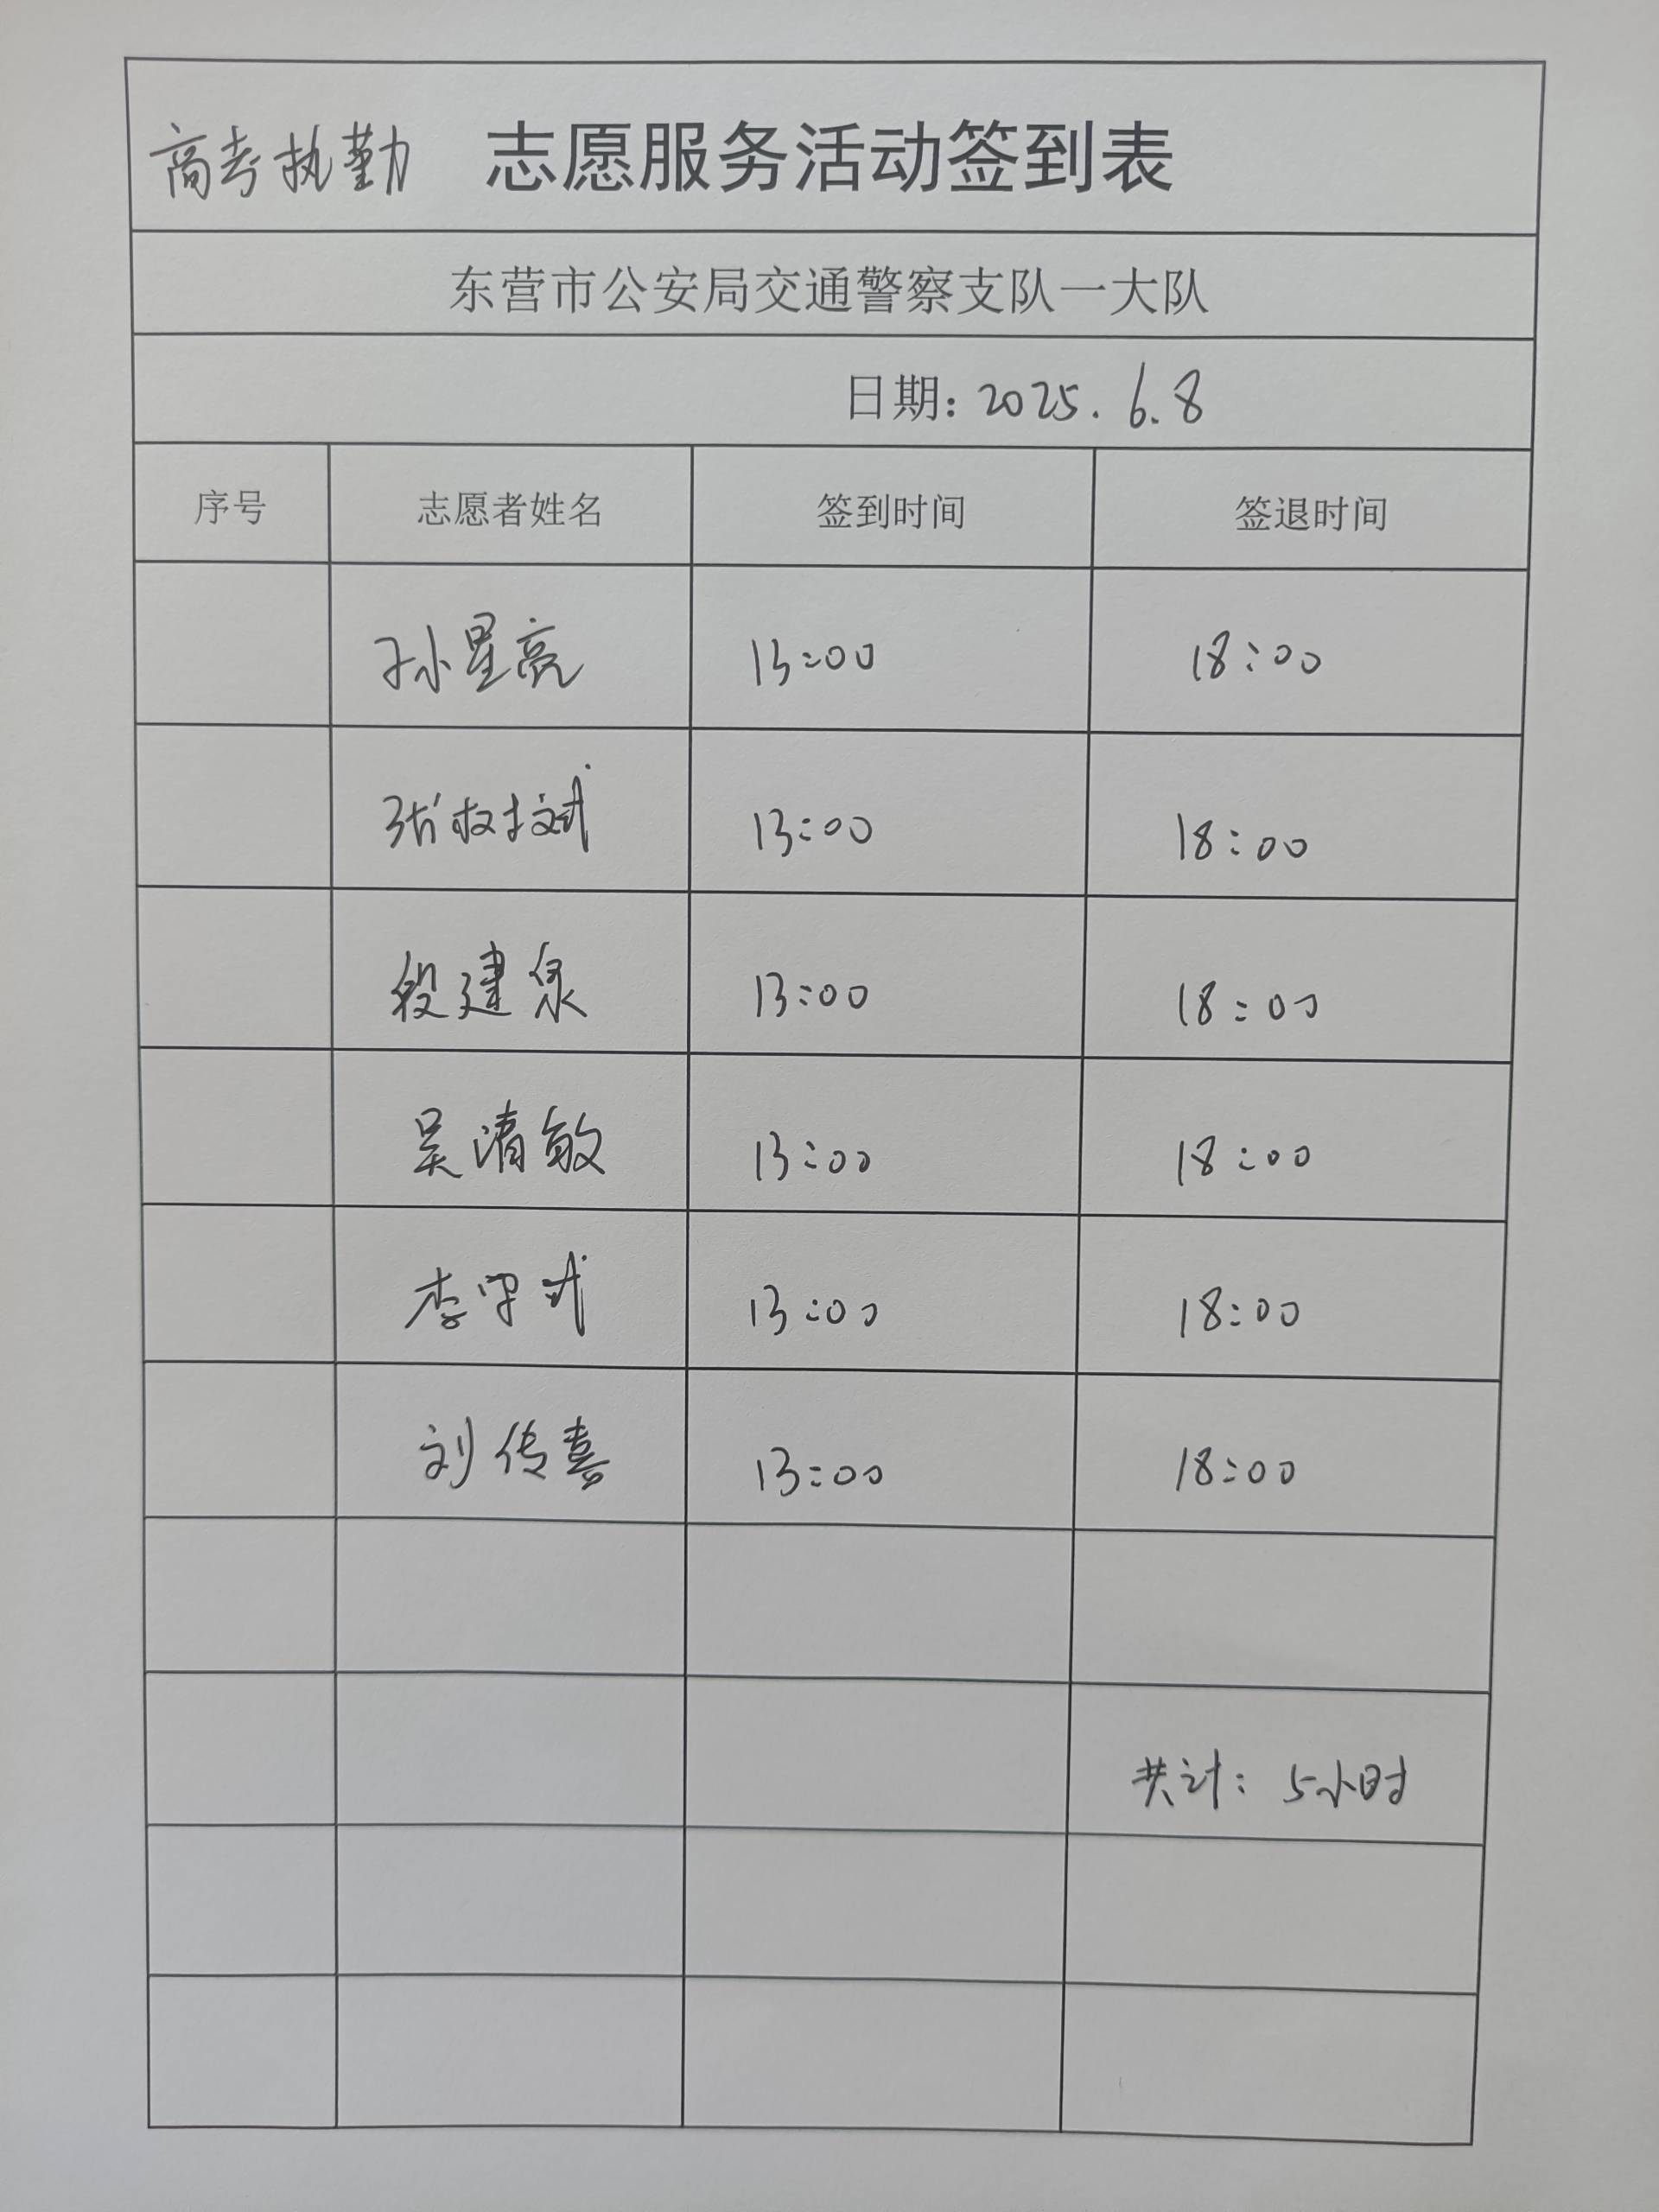 高考执勤 志愿服务活动签到表
东营市公安局交通警察支队一大队
日期: 2025.6.8
序号 志愿者姓名 签到时间 签退时间
孙星亮 13:00 18:00
张树斌 13:00 18:00
段建泉 13:00 18:00
吴清敏 13:00 18:00
李守武 13:00 18:00
刘传喜 13:00 18:00
共计: 5小时